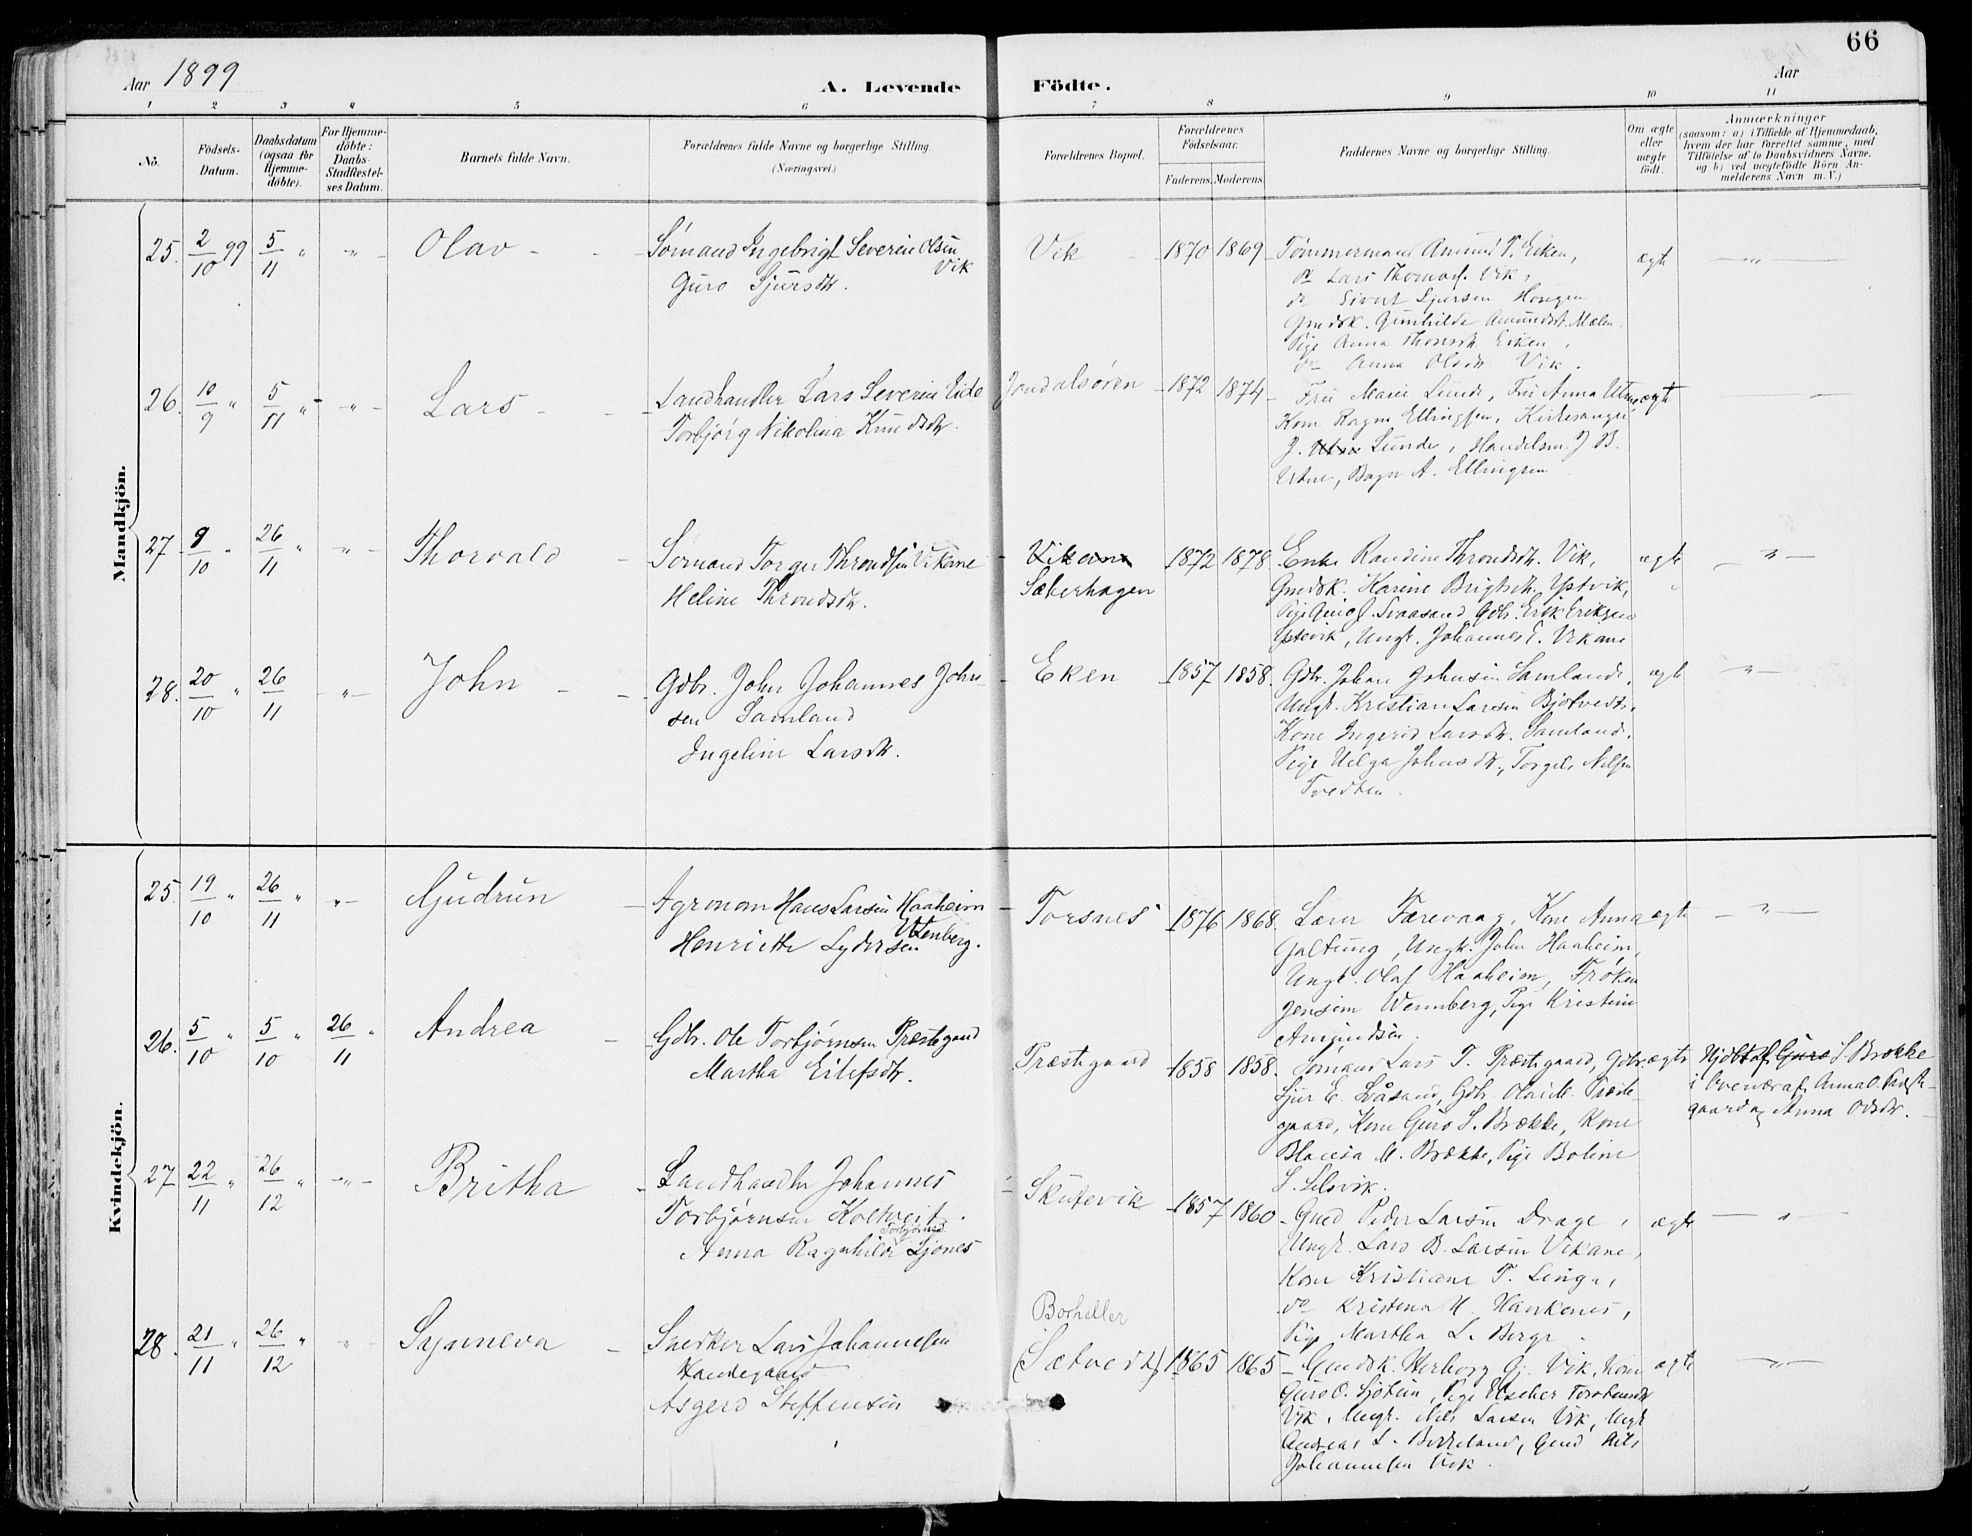 66
Aar 1899
A. Levende Födte.
Aar
1 2 3 4 5 6 7 8 9 10 11
No.
Födsels-
Datum.
Daabsdatum
(ogsaa for
Hjemme-
döbte).
For Hjemme-
döbte:
Daabs-
Stadfæstel-
ses Datum.
Barnets fulde Navn.
Forældrenes fulde Navne og borgerlige Stilling.
(Næringsvei.)
Forældrenes Bopæl.
Forældrenes
Födselsaar.
Faderens. Moderens.
Faddernes Navne og borgerlige Stilling.
Om ægte
eller
uægte
födt.
Anmærkninger
(saasom: a) i Tilfælde af Hjemmedaab,
hvem der har forrettet samme, med
Tilföielse af to Daabsvidners Navne,
og b) ved uægtefödte Börn An-
melderens Navn m. V.)
Mandkjön.
25. 2/10 99 5/11 " " Olav
Sømand Ingebrigt Severin Olsen
Vik
Guro Sjursdtr.
Vik 1870 1869
Tømmermand Amund T. Eiken,
do Lars Thomas. Vik,
do Sivert Sjursen Haugen
Gmdsk. Gunhilde Amundsd. Mælen
Pige Anna Thomsdtr Eiken,
do Anna Olsdtr Vik.
ægte
26. 10/9 " 5/11 " " Lars
Landhandler Lars Severin Eide
Torbjørg Nikolina Knudsdtr.
Jondalsøren 1872 1874
Fru Marie Lunde, Fru Anna Utne
Kone Ragna Ellingsen, Kirkesanger
J. Lunde, Handelsm. J B.
Utne, Bager A. Ellingsen
ægte
27 9/10 " 26/11 " " Thorvald
Sømand Torger Throndsen Vikane
Heline Throndsdtr.
Vikane
Sæberhagen
1872 1878
Enke Randine Throndsdtr. Vik,
Gmdsk. Karine Brigtsdtr. Ystvik,
Pige J. Svaasand Gdbr. Erik Eriksen
Ystevik, Ungk. Johannes E. Vikane
ægte
28. 20/10 " 26/11 " John
Gdbr. John Johannes John-
sen Samland
Ingeline Larsdtr.
Eken 1857 1858.
Gdbr. Johan Johnsen Samland,
Ungk. Kristian Larsen Bjotvedt,
Kone Ingerid Larsdtr. Samland,
Pige Helga Johnsdtr., Torgils Nilsen
Tvedten.
ægte
Kvindekjön.
25. 19/10 " 26/11 " " Gudrun
Agronom Hans Larsen Haaheim
Henriette Lydersen
Torsnes 1876 1868.
Lærer Færevaag, Kone Anna
Galtung, Ungk. John Haaheim,
Ungk. Olaf Haaheim, Frøken
Jensine Wennberg, Pige Kristine
Amundsen.
ægte
26. 5/10 " 5/10 " 26/11 " Andrea
Gdbr. Ole Torbjørnsen Præstegaard
Martha Eilefsdtr.
Præstegaard 1858 1858.
Sømand Lars T. Præstegaard, Gdbr.
Sjur E. Svåsand, Gdbr. Olai M. Præste-
gaard, Kone Guro S. Brække, Kone
M. Brække, Pige Boline
S. Selsvik.
ægte
Hjdbt af Guro S. Brække
i Overvær af Anna O. Præste-
gaard og Anna Olsdtr.
27 22/11 " 26/12 " " Britha
Landhandler Johannes
Torbjørnsen Koltveit.
Torbjørnsd.
Anna Ragnhilde Ljones
Skutevik 1857 1860
Gmd Peder Larsen Drage,
Ungk. Lars B. Larsen Vikane,
Kone Kristiane T. Linga,
do Kristina H. Haukenes,
Pige Martha L. Berge.
ægte
28. 21/11 " 26/12 " " Synneva
Snedker Lars Johannesen
Handegaard
Asgerd Steffensen
Borheller
(Sætvedt) 1865 1865
Gmdsk. Herborg Gj. Vik, Kone
Guro O. Sjotun, Pige Esther Torstensdtr
Vik, Ungk. Nils Larsen Vik, Ungk
Andreas L. Birkeland, Gmd Nils
Johannesen Vik.
ægte